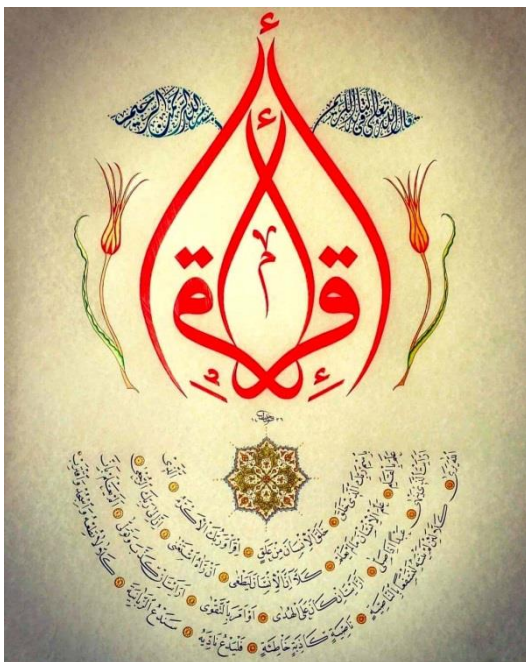 قال الله تعالى في كتابه الكريم
بسم الله الرحمن الرحيم
إقرأ
بِاسْمِ رَبِّكَ الَّذِي خَلَقَ خَلَقَ الْإِنْسَانَ مِنْ عَلَقٍ اقْرَأْ وَرَبُّكَ الْأَكْرَمُ الَّذِي
عَلَّمَ بِالْقَلَمِ عَلَّمَ الْإِنْسَانَ مَا لَمْ يَعْلَمْ كَلَّا إِنَّ الْإِنْسَانَ لَيَطْغَى أَنْ رَآهُ اسْتَغْنَى إِنَّ إِلَى رَبِّكَ الرُّجْعَى
أَرَأَيْتَ الَّذِي يَنْهَى عَبْدًا إِذَا صَلَّى أَرَأَيْتَ إِنْ كَانَ عَلَى الْهُدَى أَوْ أَمَرَ بِالتَّقْوَى أَرَأَيْتَ إِنْ كَذَّبَ وَتَوَلَّى أَلَمْ يَعْلَمْ بِأَنَّ
اللَّهَ يَرَى كَلَّا لَئِنْ لَمْ يَنْتَهِ لَنَسْفَعًا بِالنَّاصِيَةِ نَاصِيَةٍ كَاذِبَةٍ خَاطِئَةٍ فَلْيَدْعُ نَادِيَهُ سَنَدْعُ الزَّبَانِيَةَ كَلَّا لَا تُطِعْهُ وَاسْجُدْ وَاقْتَرِبْ